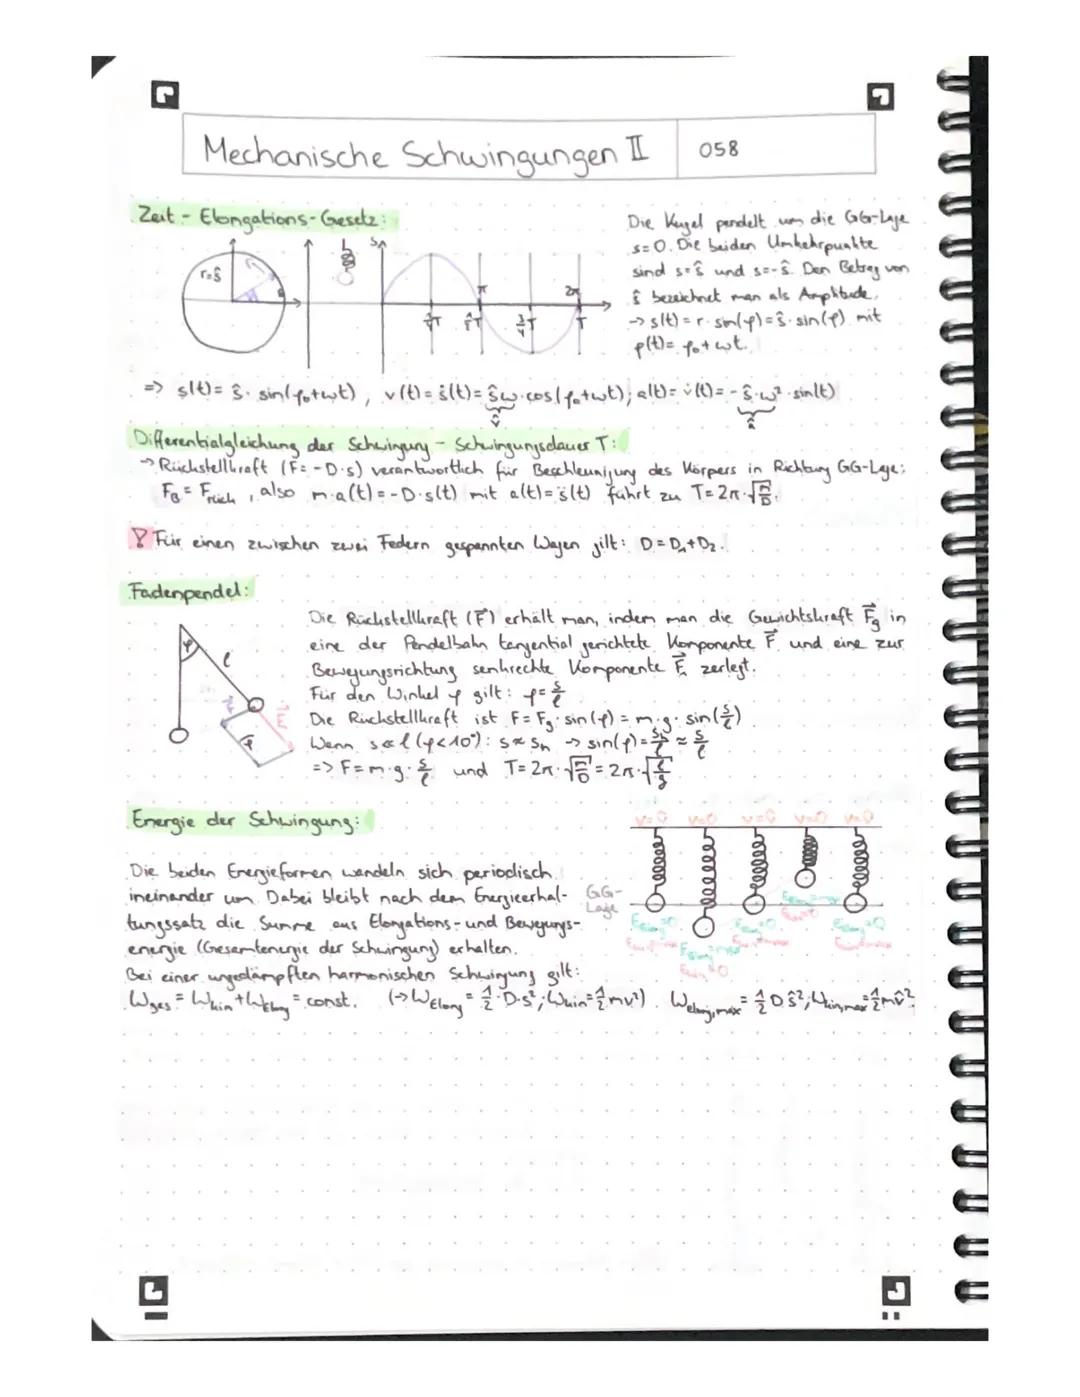 Mechanische Schwingungen II
058
Zeit - Elongations-Gesetz:
r=ŝ
s
π
2π
¼T ½T ¾T T
Die Kugel pendelt um die GG-Lage
s=0. Die beiden Umkehrpunkte
sind s=ŝ und s=-ŝ. Den Betrag von
ŝ bezeichnet man als Amplitude.
→ s(t) = r · sin(φ) = ŝ · sin(φ) mit
φ(t) = φ₀ + ωt.
=> s(t) = ŝ · sin(φ₀+ωt), v(t) = ṡ(t) = ŝω · cos(φ₀+ωt); a(t) = v̇(t) = - ŝ · ω² · sin(t)
v̂ â
Differentialgleichung der Schwingung - Schwingungsdauer T:
→ Rückstellkraft (F = -D·s) verantwortlich für Beschleunigung des Körpers in Richtung GG-Lage:
F_B = F_rück, also m·a(t) = -D·s(t) mit a(t) = s̈(t) führt zu T = 2π·√(m/D).
! Für einen zwischen zwei Federn gespannten Wagen gilt: D = D₁+D₂.
Fadenpendel:
φ
l
Die Rückstellkraft (F⃗) erhält man, indem man die Gewichtskraft F⃗g in
eine der Pendelbahn tangential gerichtete Komponente F⃗ und eine zur
Bewegungsrichtung senkrechte Komponente zerlegt.
Für den Winkel φ gilt: φ = s/l
Die Rückstellkraft ist F = Fg · sin(φ) = m · g · sin(s/l)
Wenn s≪l (φ<10°): s≈s_h → sin(φ) = s_h/l ≈ s/l
=> F = m·g·s/l und T = 2π·√(m/D) = 2π·√(l/g)
Energie der Schwingung:
v=0 v=0
Die beiden Energieformen wandeln sich periodisch
ineinander um. Dabei bleibt nach dem Energieerhal-
tungssatz die Summe aus Elongations- und Bewegungs-
energie (Gesamtenergie der Schwingung) erhalten.
GG-
Lage
Bei einer ungedämpften harmonischen Schwingung gilt:
W_ges = W_kin + W_Elong = const. (→ W_Elong = ½·D·s²; W_kin = ½mv²) W_elong,max = ½Dŝ²; W_kin,max = ½mv̂²